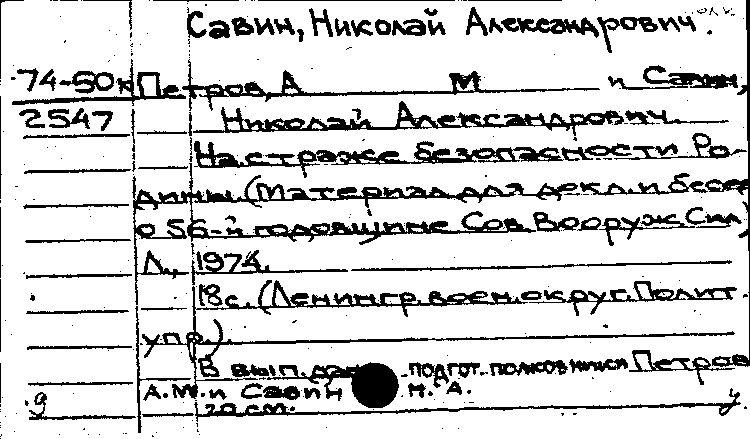 Савин, Николай Александрович.
74-50к Петров, А М и Савин,
2547 Николай Александрович.
На страже безопасности Ро-
дины. (Материал для лекц. и бесед
о 56-й годовщине Сов. Вооруж. Сил)
Л., 1974.
18с. (Ленингр. воен. округ. Полит.
упр.).
В вып. дан. подгот. полковники Петров
А.М. и Савин Н. А.
20 см.
9 у